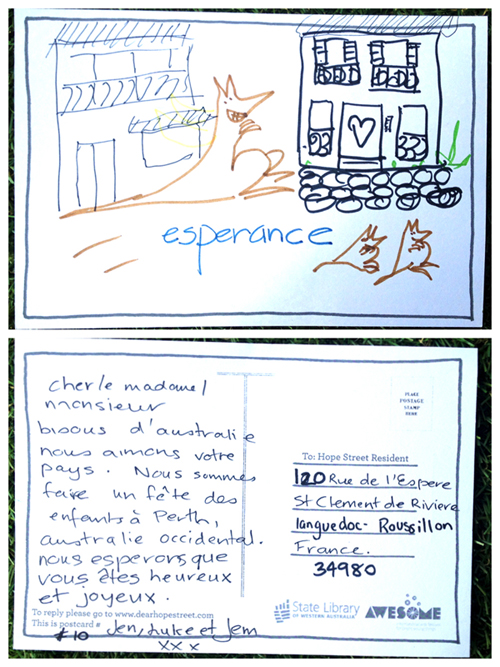 esperance
cher/e madame/
monsieur
bisous d'australie
nous aimons votre
pays. Nous sommes
faire un fête des
enfants à Perth,
australie occidental.
nous esperons que
vous êtes heureux
et joyeux.
To reply please go to www.dearhopestreet.com
This is postcard #
#10 Jen, Luke et Jem
xx x
PLACE
POSTAGE
STAMP
HERE
To: Hope Street Resident
120 Rue de l'Espere
St Clement de Riviere
languedoc-Roussillon
France.
34980
State Library
OF WESTERN AUSTRALIA
AWESOME